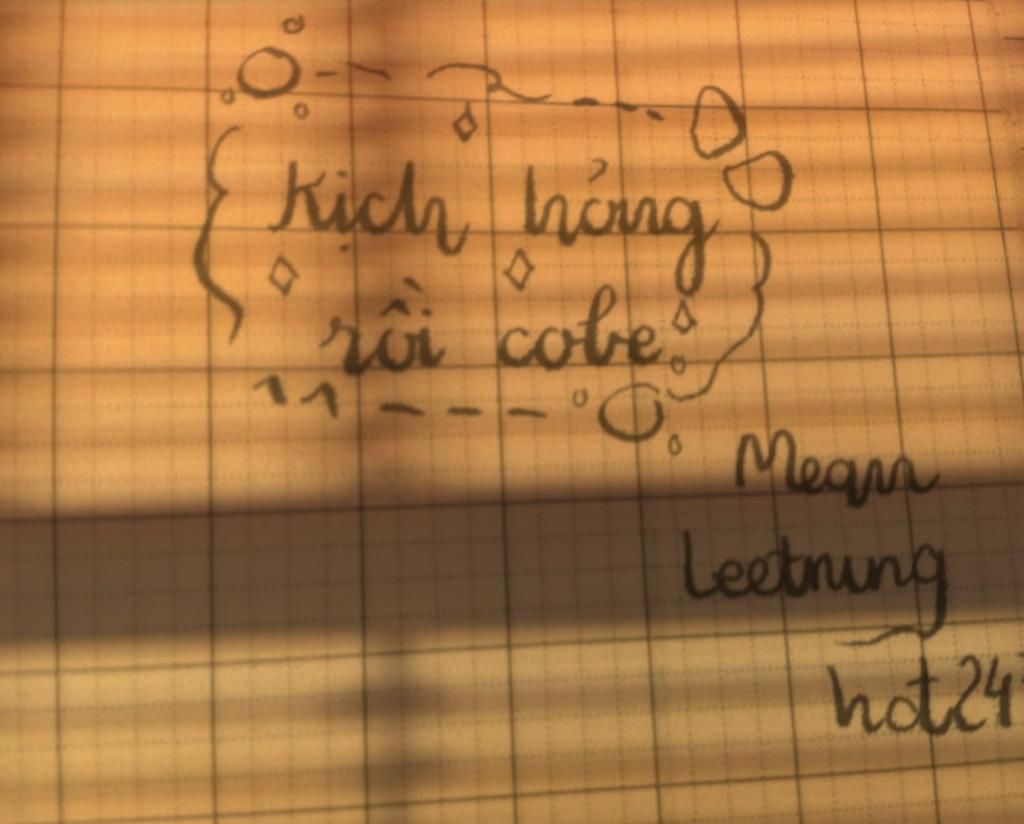 Kịch hỏng
rồi cobe
Mean
Leetnung
hot24